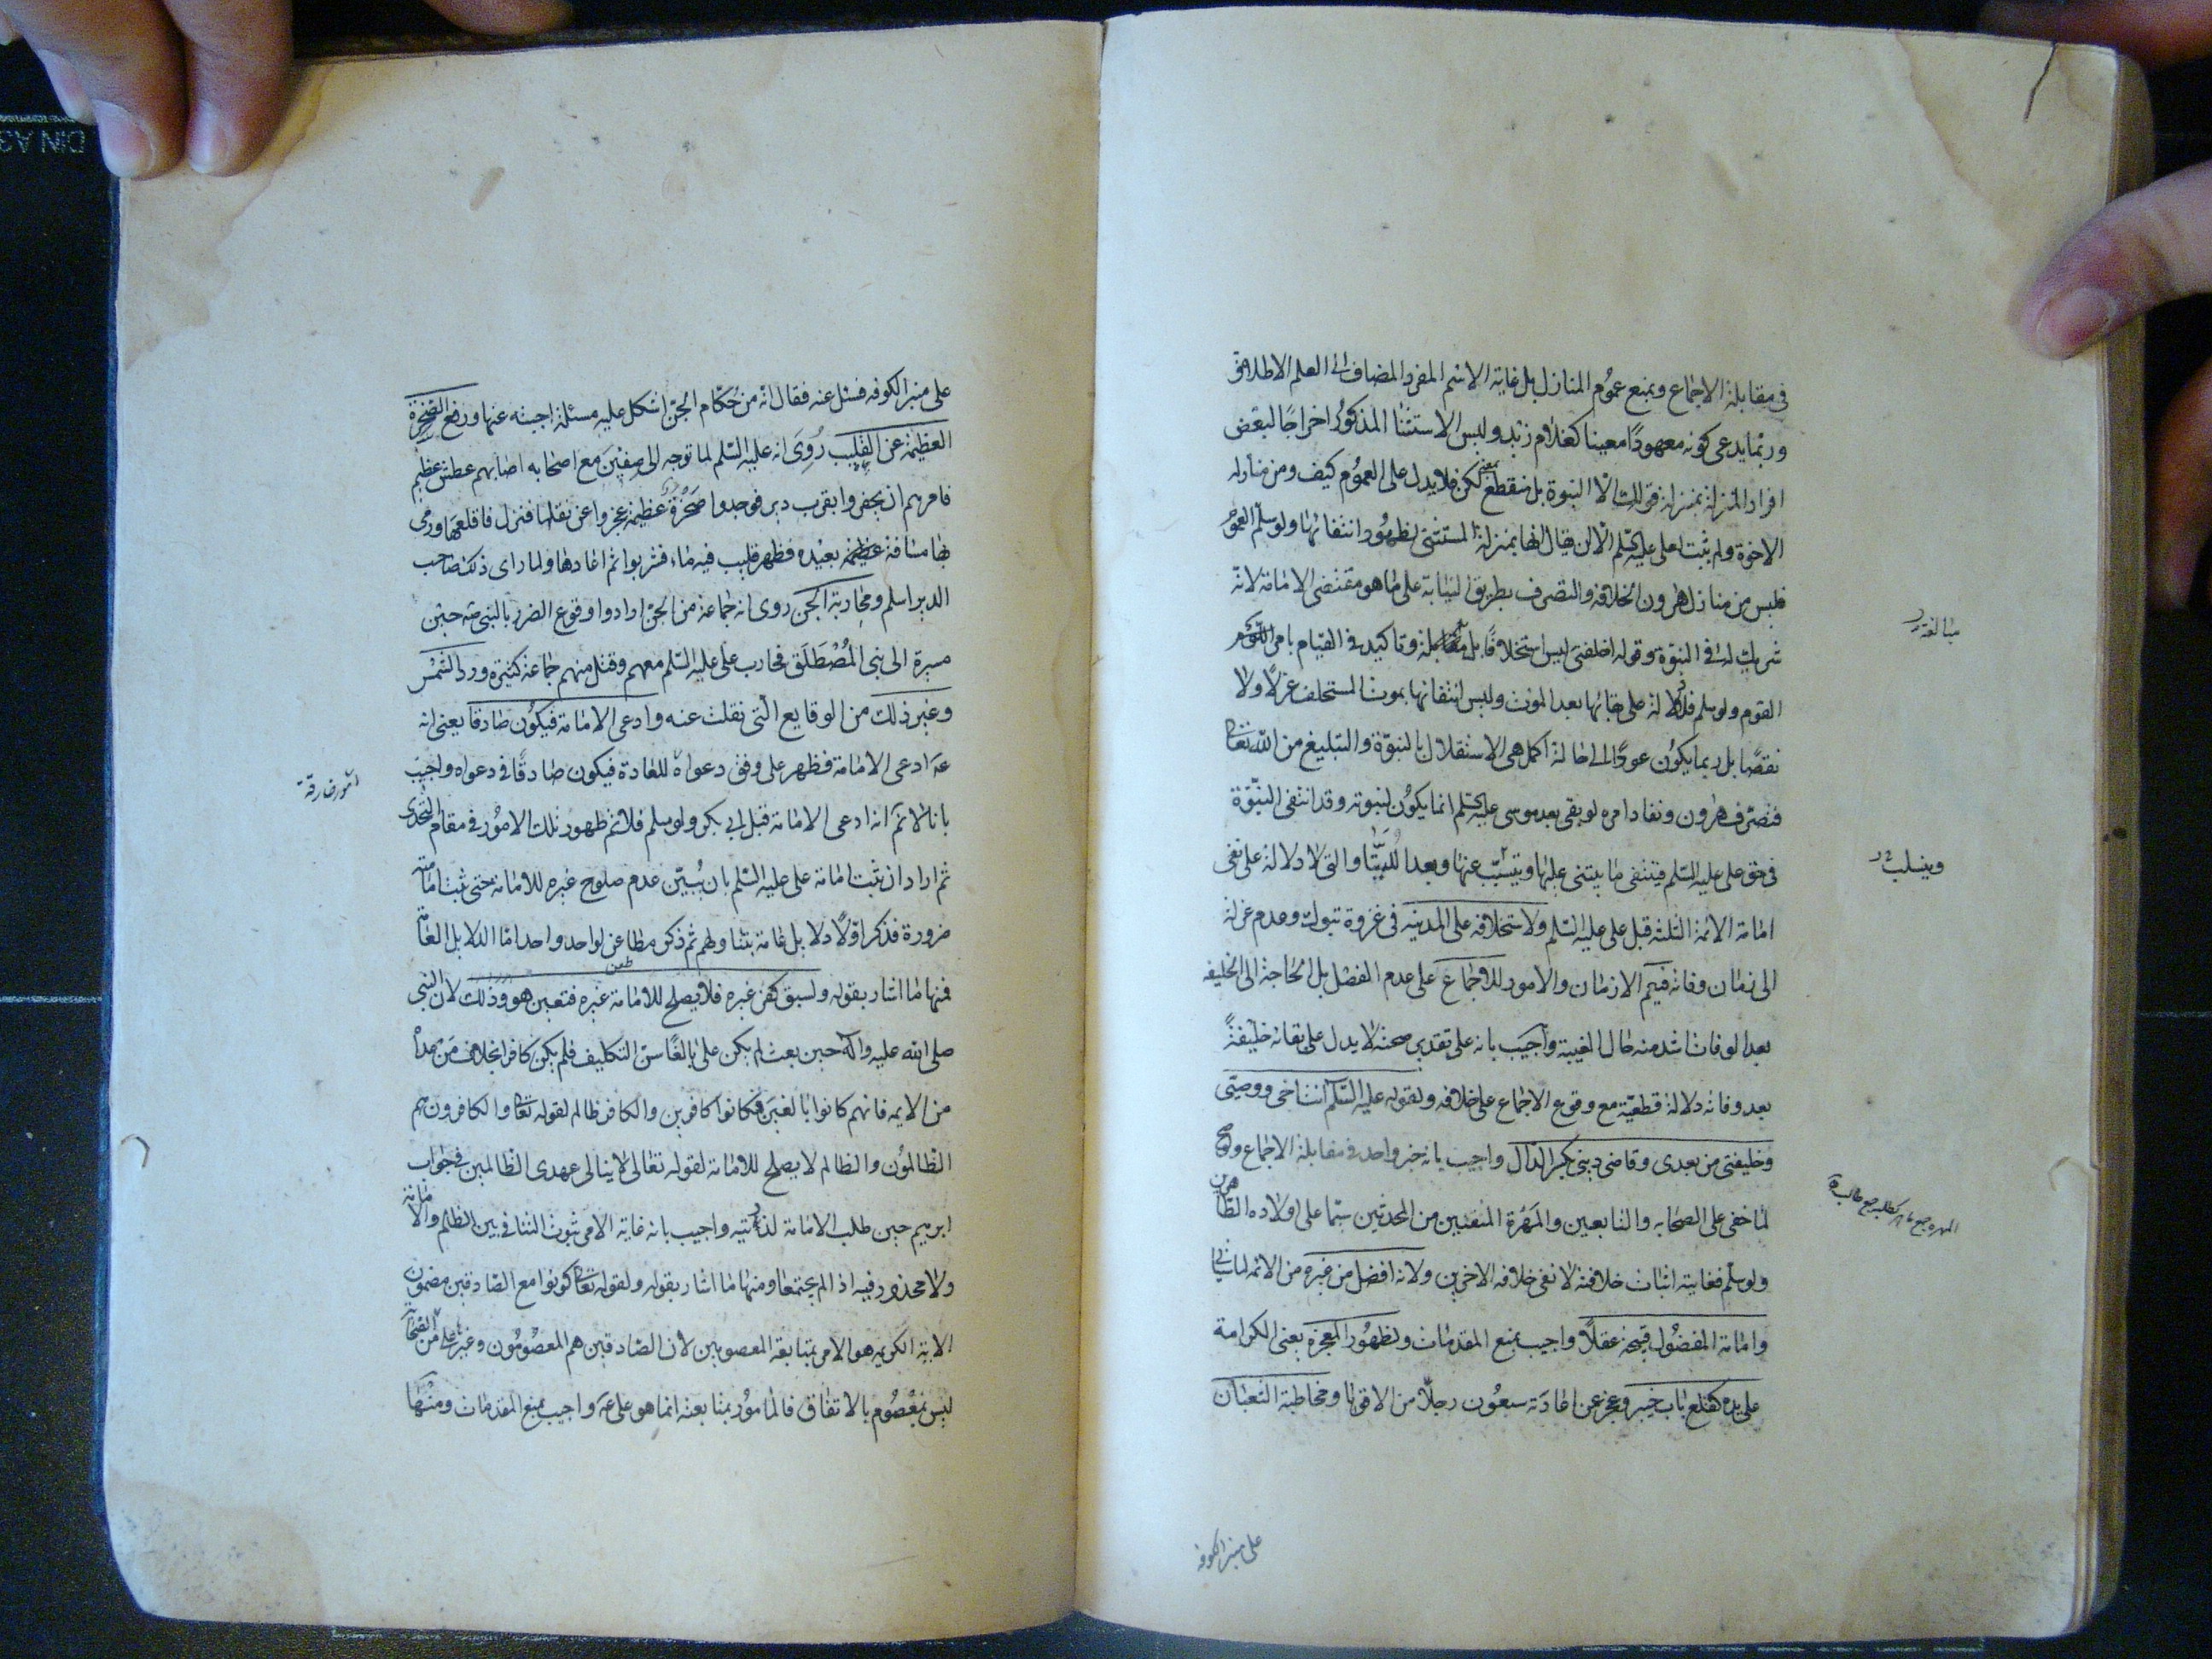 في مقابلة الاجماع وبمنع عموم المنازل بل غاية الاسم المفرد المضاف الى العلم الاطلاق
وربما يدعى كونه معهودا معينا كغلام زيد وليس الاستثناء المذكور اخراجا لبعض
افراد المنزلة بمنزلة قولك الا النبوة بل منقطع بمعنى لكن فلا يدل على العموم كيف ومن منازله
الاخوة ولم يثبت لعلي عليه السلم الا ان يقال انها بمنزلة المستثنى لظهور انتفائها ولو سلم العموم
فليس من منازل هرون الخلافة والتصرف بطريق النيابة على ما هو مقتضى الامامة لانه
شريك له في النبوة وقوله اخلفني ليس استخلافا بل وتاكيد في القيام بامر القوم
القوم ولو سلم فلا دلالة على بقائها بعد الموت وليس انتفائها بموت المستخلف عزلا ولا
نقصا بل ربما يكون عودا الى حالة اكمل هي الاستقلال بالنبوة والتبليغ من الله تعالى
فتصرف هرون ونفاد امره لو بقى بعد موسى عليه السلم انما يكون لنبوته وقد انتفى النبوة
في حق علي عليه السلم فينتفى ما يبتنى عليها ويتسبب عنها وبعد اللتيا والتي لا دلالة على نفي
امامة الائمة الثلثة قبل علي عليه السلم ولاستخلافه على المدينة في غزوة تبوك وعدم عزله
الى زمان وفاته فيعم الازمان والامور للاجماع على عدم الفصل بل الحاجة الى الخليفة
بعد الوفات اشد منه حال الغيبة واجيب بانه على تقدير صحته لا يدل على بقائه خليفة
بعد وفاته دلالة قطعية مع وقوع الاجماع على خلافه ولقوله عليه السلم انت اخي ووصيي
وخليفتي من بعدي وقاضي ديني بكسر الدال واجيب بانه خبر واحد في مقابلة الاجماع ولو صح
لما خفى على الصحابه والتابعين والمهرة المتقنين من المحدثين سيما على اولاده الطاهرين
ولو سلم فغايته اثبات خلافته لا نفي خلافة الاخرين ولانه افضل من غيره من الائمه لما سياتي
وامامة المفضول قبيحة عقلا واجيب بمنع المقدمات ولظهور المعجزة يعنى الكرامة
على يده كقلع باب خيبر وعجز عن اعادته سبعون رجلا من الاقوياء ومخاطبة الثعبان
مبالغة
وينسلب
على منبر الكوفه
على منبر الكوفه فسئل عنه فقال انه من حكام الجن اشكل عليه مسئلة اجبته عنها ورفع الصخرة
العظيمة عن القليب روى انه عليه السلم لما توجه الى صفين مع اصحابه اصابهم عطش عظيم
فامرهم ان يحفروا بقرب دير فوجدوا صخرة عظيمة عجزوا عن نقلها فنزل فاقلعها ورمى
بها مسافة بعيده فظهر قليب فيه ماء فشربوا ثم اعادها ولما راى ذلك صاحب
الدير اسلم ومحاربة الجن روى انه جماعة من الجن ارادوا وقوع الضرر بالنبي حين
مسيرة الى بني المصطلق فحارب على عليه السلم معهم وقتل منهم جماعة كثيرة ورد الشمس
وغير ذلك من الوقايع التي نقلت عنه وادعى الامامة فيكون صادقا يعنى انه
ادعى الامامة فظهر على وفق دعواه للعادة فيكون صادقا في دعواه واجيب
بانا لانم انه ادعى الامامة قبل ابي بكر ولو سلم فلانم ظهور تلك الامور في مقام التحدى
ثم اراد ان يثبت امامة علي عليه السلم بان يبين عدم صلوح غيره للامامة حتى يثبت امامته
ضرورة فذكر اولا دلايل عامة يتناولهم ثم ذكر مطاعن لواحد واحد اما الدلايل العامة
فمنها ما اشار بقوله ولسبق كفر غيره فلا يصلح للامامة غيره فتعين هو وذلك لان النبي
صلى الله عليه واله حين بعث لم يكن على بالغا سن التكليف فلم يكن كافرا بخلاف من عداه
من الايمه فانهم كانوا بالغين فكانوا كافرين والكافر ظالم لقوله تعالى والكافرون هم
الظالمون والظالم لا يصلح للامامة لقوله تعالى لا ينال عهدى الظالمين في جواب
ابرهيم حين طلب الامامة لذريته واجيب بانه غاية الامر ثبوت التنافي بين الظلم والامامة
ولا محذور فيه اذا لم يجتمعا ومنها ما اشار بقوله ولقوله تعالى كونوا مع الصادقين مضمون
الاية الكريمه هو الامر بمتابعة المعصومين لان الصادقين هم المعصومون وغير على من الصحابة
ليس بمعصوم بالاتفاق فالمامور بمتابعته انما هو علي واجيب بمنع المقدمات ومنها
امور خارقة
DIN A3